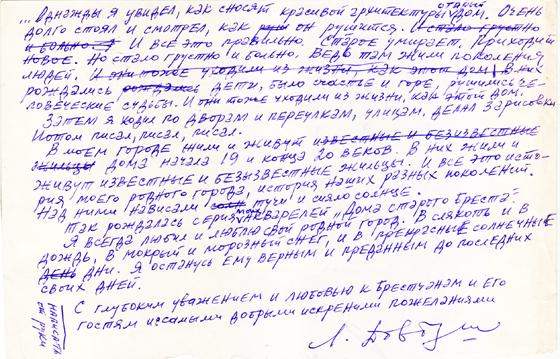 ... Однажды я увидел, как сносят красивой архитектуры старый дом. Очень
долго стоял и смотрел, как он рушится. И стало грустно
и больно. И все это правильно. Старое умирает, приходит
новое. Но стало грустно и больно. Ведь там жили поколения
людей. И они тоже уходили из жизни, как этот дом. В них
рождались рождались дети, было счастье и горе, вершились че-
ловеческие судьбы. И они тоже уходили из жизни, как этот дом.
Затем я ходил по дворам и переулкам, улицам, делал зарисовки
Потом писал, писал, писал.
В моем городе жили и живут известные и безызвестные
жильцы дома начала 19 и конца 20 веков. В них жили и
живут известные и безызвестные жильцы. И все это исто-
рия моего родного города, история наших разных поколений.
Над ними нависали тучи и сияло солнце.
Так рождалась серия моих акварелей "Дома старого Бреста".
Я всегда любил и люблю свой родной город. В слякоть и в
дождь, в мокрый и морозный снег, и в прекрасные солнечные
день дни. Я останусь ему верным и преданным до последних
своих дней.
С глубоким уважением и любовью к брестчанам и его
гостям и с самыми добрыми искренними пожеланиями
написать
от руки